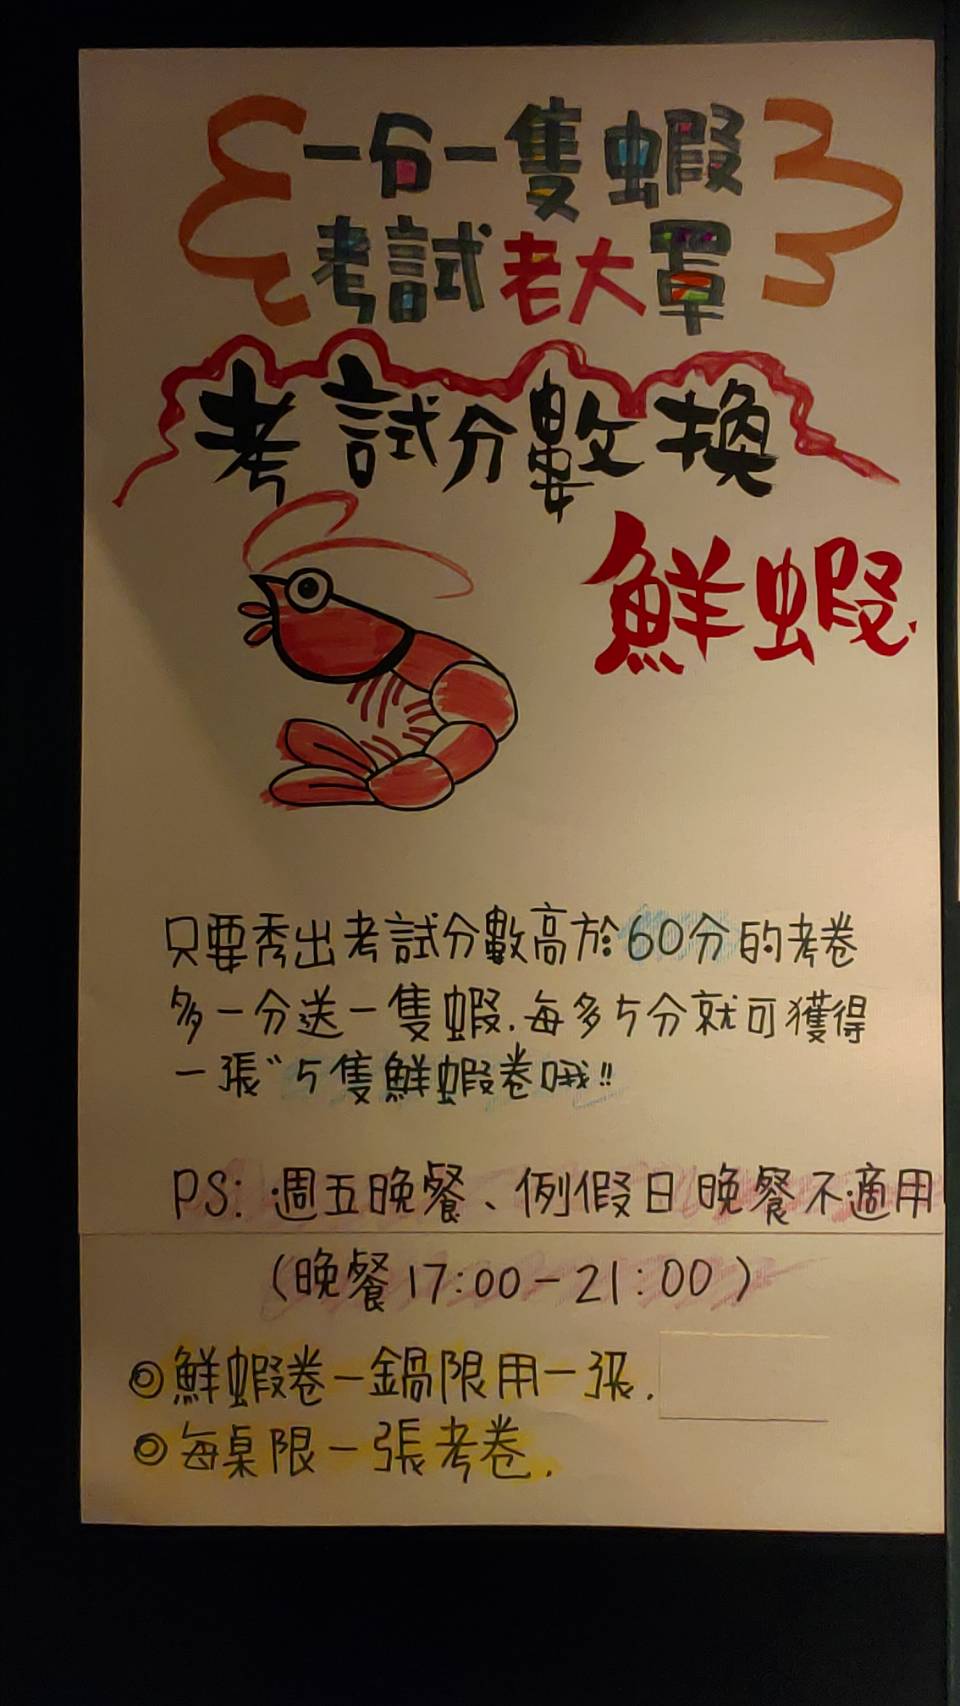 一分一隻蝦
考試老大罩
考試分數換
鮮蝦.
只要秀出考試分數高於60分的考卷
多一分送一隻蝦.每多5分就可獲得
一張"5隻鮮蝦卷哦!!
PS:週五晚餐、例假日晚餐不適用
(晚餐17:00-21:00)
◎鮮蝦卷一鍋限用一張.
◎每桌限一張考卷.